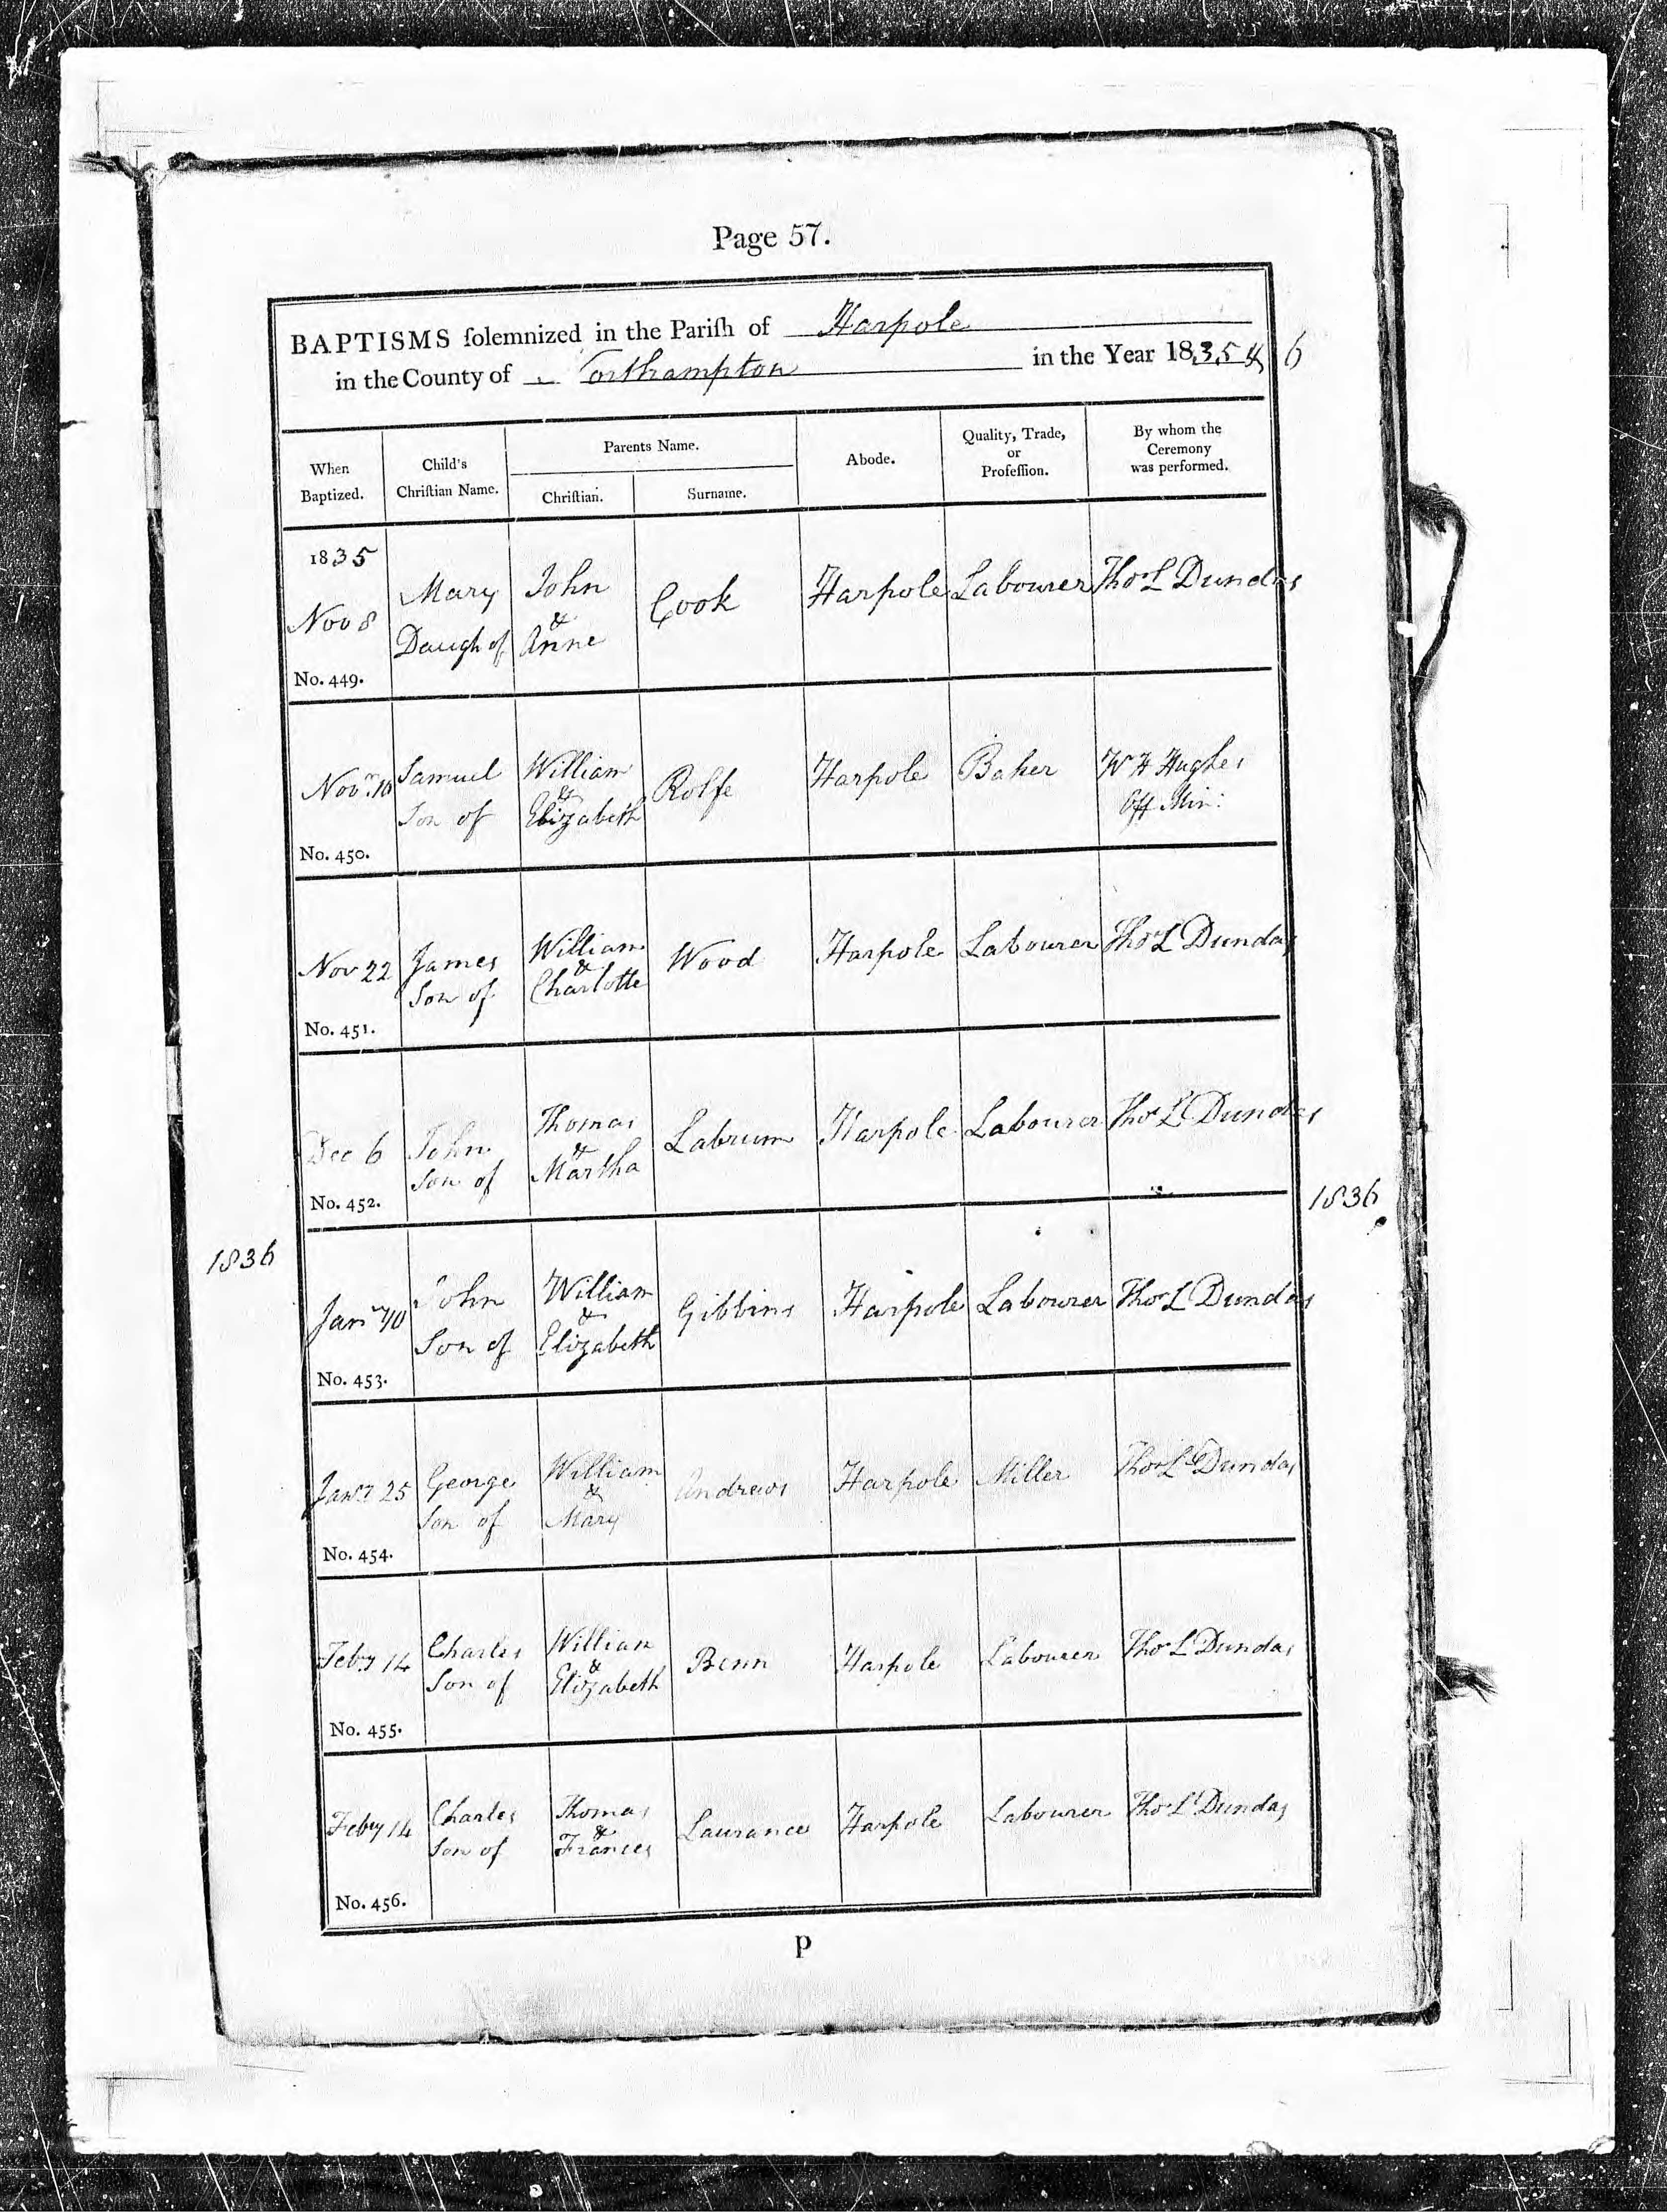 Page 57.
BAPTISMS solemnized in the Parish of Harpole
in the County of Northampton in the Year 1835 & 6
When
Baptized.
Child's
Christian Name.
Parents Name.
Christian.
Surname.
Abode.
Quality, Trade,
or
Profession.
By whom the
Ceremony
was performed.
1835
Nov 8
No. 449.
Mary
Daugh of
John
&
Anne
Cook
Harpole
Labourer
Thos L Dundas
Novr. 10
No. 450.
Samuel
Son of
William
&
Elizabeth
Rolfe
Harpole
Baker
Wm H Hughes
Off Min:
Nov 22
No. 451.
James
Son of
William
&
Charlotte
Wood
Harpole
Labourer
Thos L Dundas
Dec 6
No. 452.
John
Son of
Thomas
&
Martha
Labrum
Harpole
Labourer
Thos L Dundas
1836
1836
Jany 10
No. 453.
John
Son of
William
&
Elizabeth
Gibbins
Harpole
Labourer
Thos L Dundas
Jany 25
No. 454.
George
Son of
William
&
Mary
Andrews
Harpole
Miller
Thos L Dundas
Feby 14
No. 455.
Charles
Son of
William
&
Elizabeth
Benn
Harpole
Labourer
Thos L Dundas
Feby 14
No. 456.
Charles
Son of
Thomas
&
Frances
Laurance
Harpole
Labourer
Thos L Dundas
P